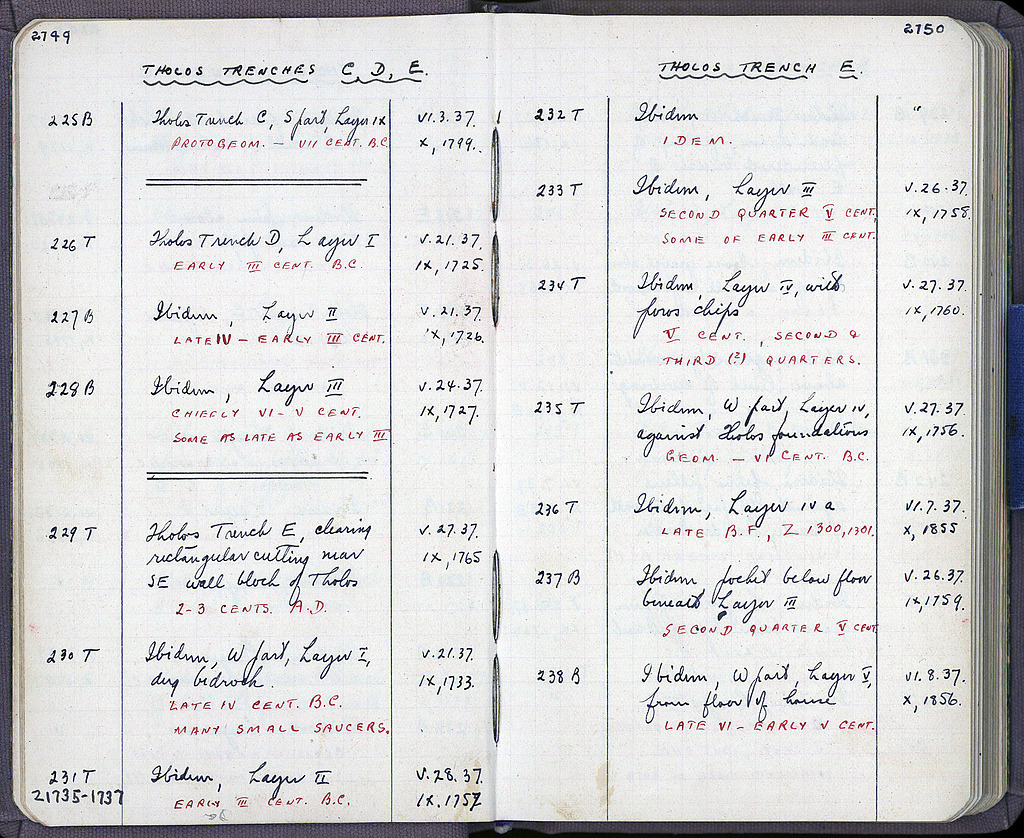 2749
THOLOS TRENCHES C, D, E.
225 B Tholos Trench C, S part, Layer IX VI.3.37.
PROTOGEOM. — VII CENT. B.C. X, 1799.
226 T Tholos Trench D, Layer I V.21.37.
EARLY III CENT. B.C. IX, 1725.
227 B Ibidem, Layer II V.21.37.
LATE IV – EARLY III CENT. IX, 1726.
228 B Ibidem, Layer III V.24.37.
CHIEFLY VI – V CENT. IX, 1727.
SOME AS LATE AS EARLY III
229 T Tholos Trench E, clearing V.27.37.
rectangular cutting near IX, 1765
SE wall block of Tholos
2-3 CENTS. A.D.
230 T Ibidem, W part, Layer I, V.21.37.
dug bedrock. IX, 1733.
LATE IV CENT. B.C.
MANY SMALL SAUCERS.
231 T Ibidem, Layer II V.28.37.
21735-1737 EARLY III CENT. B.C. IX. 1757
2750
THOLOS TRENCH E.
232 T Ibidem "
IDEM.
233 T Ibidem, Layer III V.26.37.
SECOND QUARTER V CENT., IX, 1758.
SOME OF EARLY III CENT.
234 T Ibidem, Layer IV, with V.27.37.
poros chips IX, 1760.
V CENT., SECOND &
THIRD (?) QUARTERS.
235 T Ibidem, W part, Layer IV, V.27.37.
against Tholos foundations IX, 1756.
GEOM. — VI CENT. B.C.
236 T Ibidem, Layer IV a VI.7.37.
LATE B.F., Z 1300, 1301. X, 1855
237 B Ibidem pocket below floor V.26.37.
beneath Layer III IX, 1759.
SECOND QUARTER V CENT
238 B Ibidem, W part, Layer V, VI.8.37.
from floor of house X, 1856.
LATE VI – EARLY V CENT.